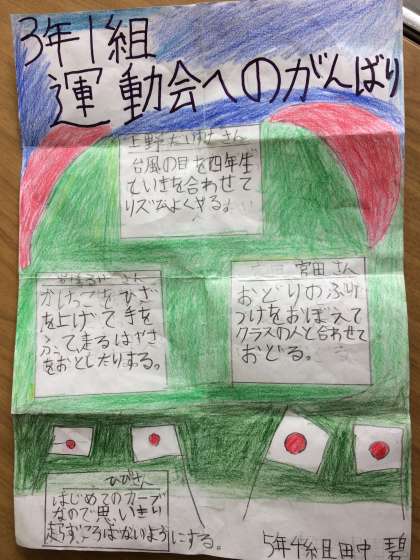 3年1組
運動会へのがんばり
上野たいようさん
台風の目を四年生
でいきを合わせて
リズムよくやる。
さん
かけっこをひざ
を上げて手を
ふって走るはやさ
をおとしたりする。
宮田さん
おどりのふり
つけをおぼえて
クラスの人と合わせて
おどる。
ひびさん
はじめてのカーブ
なので思いきり
ころばないようにする。
5年4組 田中 碧